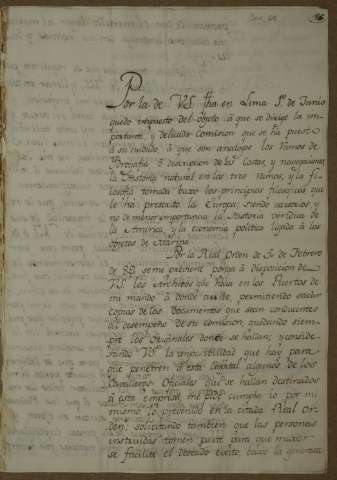 Por la de V.S. fha en Lima 1º. de Junio
quedo impuesto del objeto á que se dirige la im-
portante, y delicada Comision que se ha puesto
á su cuidado, á que son analogos los ramos de
Geografia, ó descripcion de las Costas, y navegaciones,
la Historia natural en los tres ramos, y la fi-
losofia tomada baxo los principios filosoficos que
le ha presentado la Europa, siendo accesorios y
no de menor importancia la Historia veridica de
la America, y la economia politica ligada á los
objetos de Marina.
Por la Real Orden de de Febrero
de 89 se me previene ponga á disposicion de
V.S. los Archivos que haia en los Puertos de
mi mando á donde permitiendo sacar
copias de los documentos que sean conducentes
al desempeño de su comision, quedando siem-
pre los originales donde se hallan; y conside-
rando V.S. la imposibilidad que hay para
que penetren á esta Capital algunos de los
Cavalleros Oficiales que se hallan destinados
á esta empresa, me pide cumpla io por mi
mismo lo prevenido en la citada Real Or-
den; solicitando tambien que las personas
instruidas tomen parte para que maior-
se facilite el deseado exito, baxo la generosa